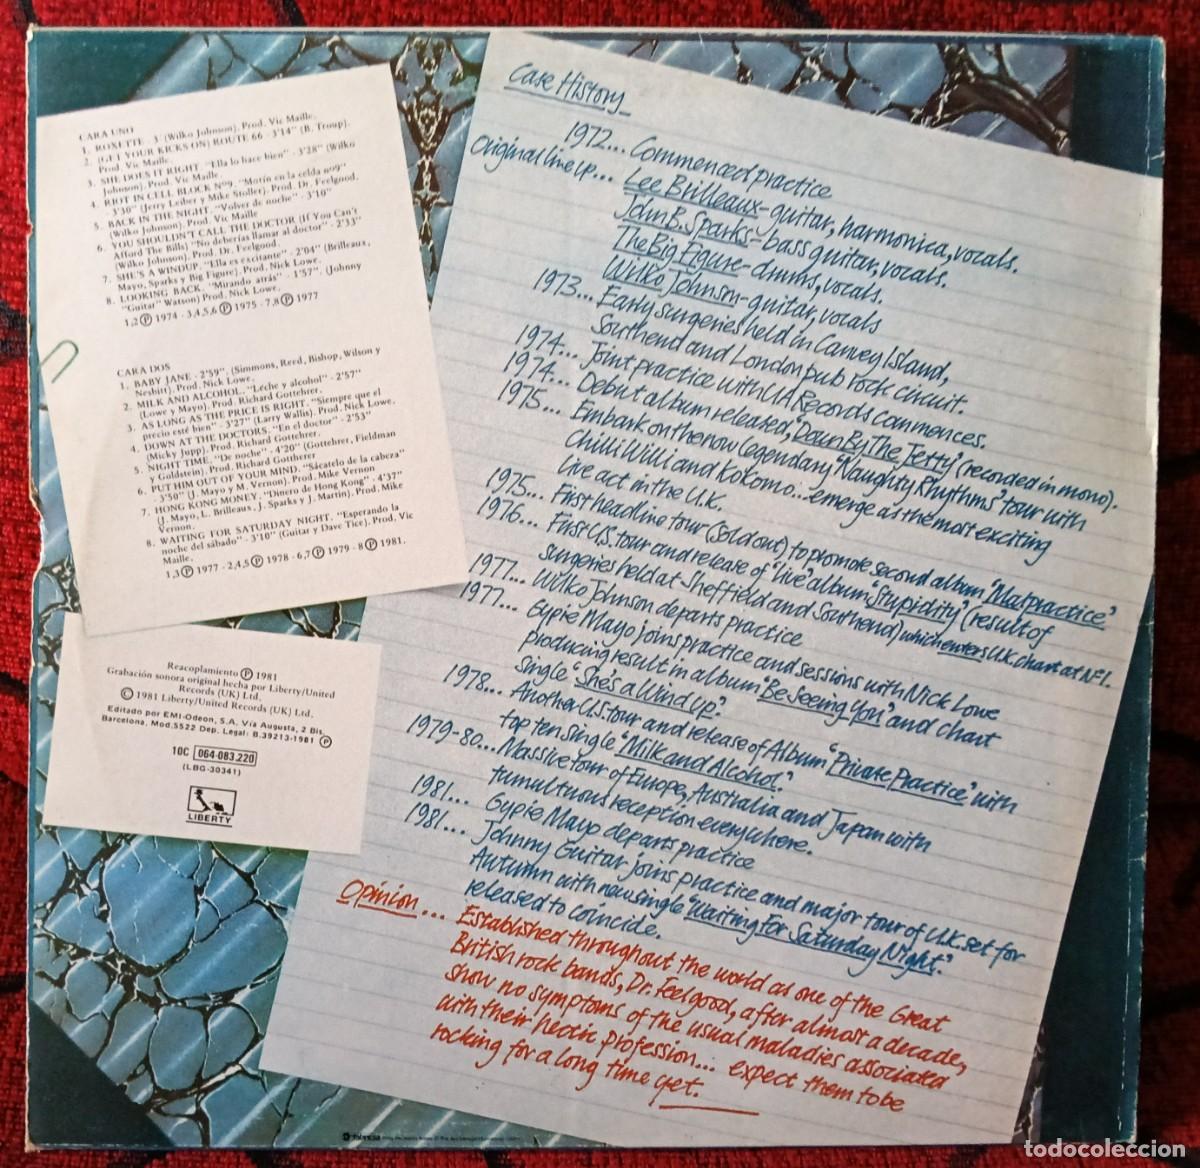 CARA UNO
1. ROXETTE - 3' (Wilko Johnson). Prod. Vic Maille.
2. (GET YOUR KICKS ON) ROUTE 66 - 3'14" (B. Troup).
Prod. Vic Maille.
3. SHE DOES IT RIGHT. "Ella lo hace bien" - 3'28" (Wilko
Johnson). Prod. Vic Maille.
4. RIOT IN CELL BLOCK Nº9. "Motín en la celda nº9"
- 3'30" (Jerry Leiber y Mike Stoller). Prod. Dr. Feelgood.
5. BACK IN THE NIGHT. "Volver de noche" - 3'10"
(Wilko Johnson). Prod. Vic Maille
6. YOU SHOULDN'T CALL THE DOCTOR (If You Can't
Afford The Bills) "No deberías llamar al doctor" - 2'33"
(Wilko Johnson). Prod. Dr. Feelgood.
7. SHE'S A WINDUP. "Ella es excitante" - 2'04" (Brilleaux,
Mayo, Sparks y Big Figure). Prod. Nick Lowe.
8. LOOKING BACK. "Mirando atrás" - 1'57". (Johnny
"Guitar" Watson) Prod. Nick Lowe.
1,2 Ⓟ 1974 - 3,4,5,6 Ⓟ 1975 - 7,8 Ⓟ 1977
CARA DOS
1. BABY JANE - 2'59". (Simmons, Reed, Bishop, Wilson y
Nesbitt). Prod. Nick Lowe.
2. MILK AND ALCOHOL. "Leche y alcohol" - 2'57"
(Lowe y Mayo). Prod. Richard Gottehrer.
3. AS LONG AS THE PRICE IS RIGHT. "Siempre que el
precio esté bien" - 3'27" (Larry Wallis). Prod. Nick Lowe.
4. DOWN AT THE DOCTORS. "En el doctor" - 2'53"
(Micky Jupp). Prod. Richard Gottehrer.
5. NIGHT TIME. "De noche" - 4'20" (Gottehrer, Feldman
y Goldstein). Prod. Richard Gottherer
6. PUT HIM OUT OF YOUR MIND. "Sácatelo de la cabeza"
- 3'50" (J. Mayo y M. Vernon). Prod. Mike Vernon
7. HONG KONG MONEY. "Dinero de Hong Kong" - 4'37"
(J. Mayo, L. Brilleaux, J. Sparks y J. Martin). Prod. Mike
Vernon.
8. WAITING FOR SATURDAY NIGHT. "Esperando la
noche del sábado" - 3'10" (Guitar y Dave Tice). Prod. Vic
Maille.
1,3 Ⓟ 1977 - 2,4,5 Ⓟ 1978 - 6,7 Ⓟ 1979 - 8 Ⓟ 1981.
Reacoplamiento Ⓟ 1981
Grabación sonora original hecha por Liberty/United
Records (UK) Ltd.
© 1981 Liberty/United Records (UK) Ltd.
Editado por EMI-Odeon, S.A. Vía Augusta, 2 Bis.
Barcelona, Mod.5522 Dep. Legal: B.39213-1981 Ⓟ
10C 064-083.220
(LBG-30341)
LIBERTY
Case History
1972... Commenced practice
Original line up... Lee Brilleaux- guitar, harmonica, vocals.
John B. Sparks- bass guitar, vocals.
The Big Figure- drums, vocals.
Wilko Johnson- guitar, vocals
1973... Early surgeries held in Canvey Island,
Southend and London pub rock circuit.
1974... Joint practice with UA Records commences.
1974... Debut album released, "Down By The Jetty" (recorded in mono).
1975... Embark on the now legendary "Naughty Rhythms" tour with
Chilli Willi and Kokomo... emerge as the most exciting
live act in the U.K.
1975... First headline tour (Sold out) to promote second album "Malpractice"
1976... First U.S. tour and release of "live" album "Stupidity" (result of
surgeries held at Sheffield and Southend) which enters U.K. chart at Nº1.
1977... Wilko Johnson departs practice
1977... Gypie Mayo joins practice and sessions with Nick Lowe
producing result in album "Be Seeing You" and chart
single "She's a Wind Up".
1978... Another U.S. tour and release of Album "Private Practice" with
top ten single "Milk and Alcohol".
1979-80... Massive tour of Europe, Australia and Japan with
tumultuous reception everywhere.
1981... Gypie Mayo departs practice
1981... Johnny Guitar joins practice and major tour of U.K. set for
Autumn with new single "Waiting For Saturday Night."
released to coincide.
Opinion... Established throughout the world as one of the Great
British rock bands, Dr. Feelgood, after almost a decade,
show no symptoms of the usual maladies associated
with their hectic profession... expect them to be
rocking for a long time yet.
todocoleccion